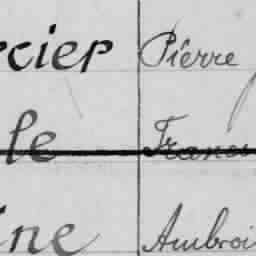 rcier Pierre
le Franço
ine Ambroi